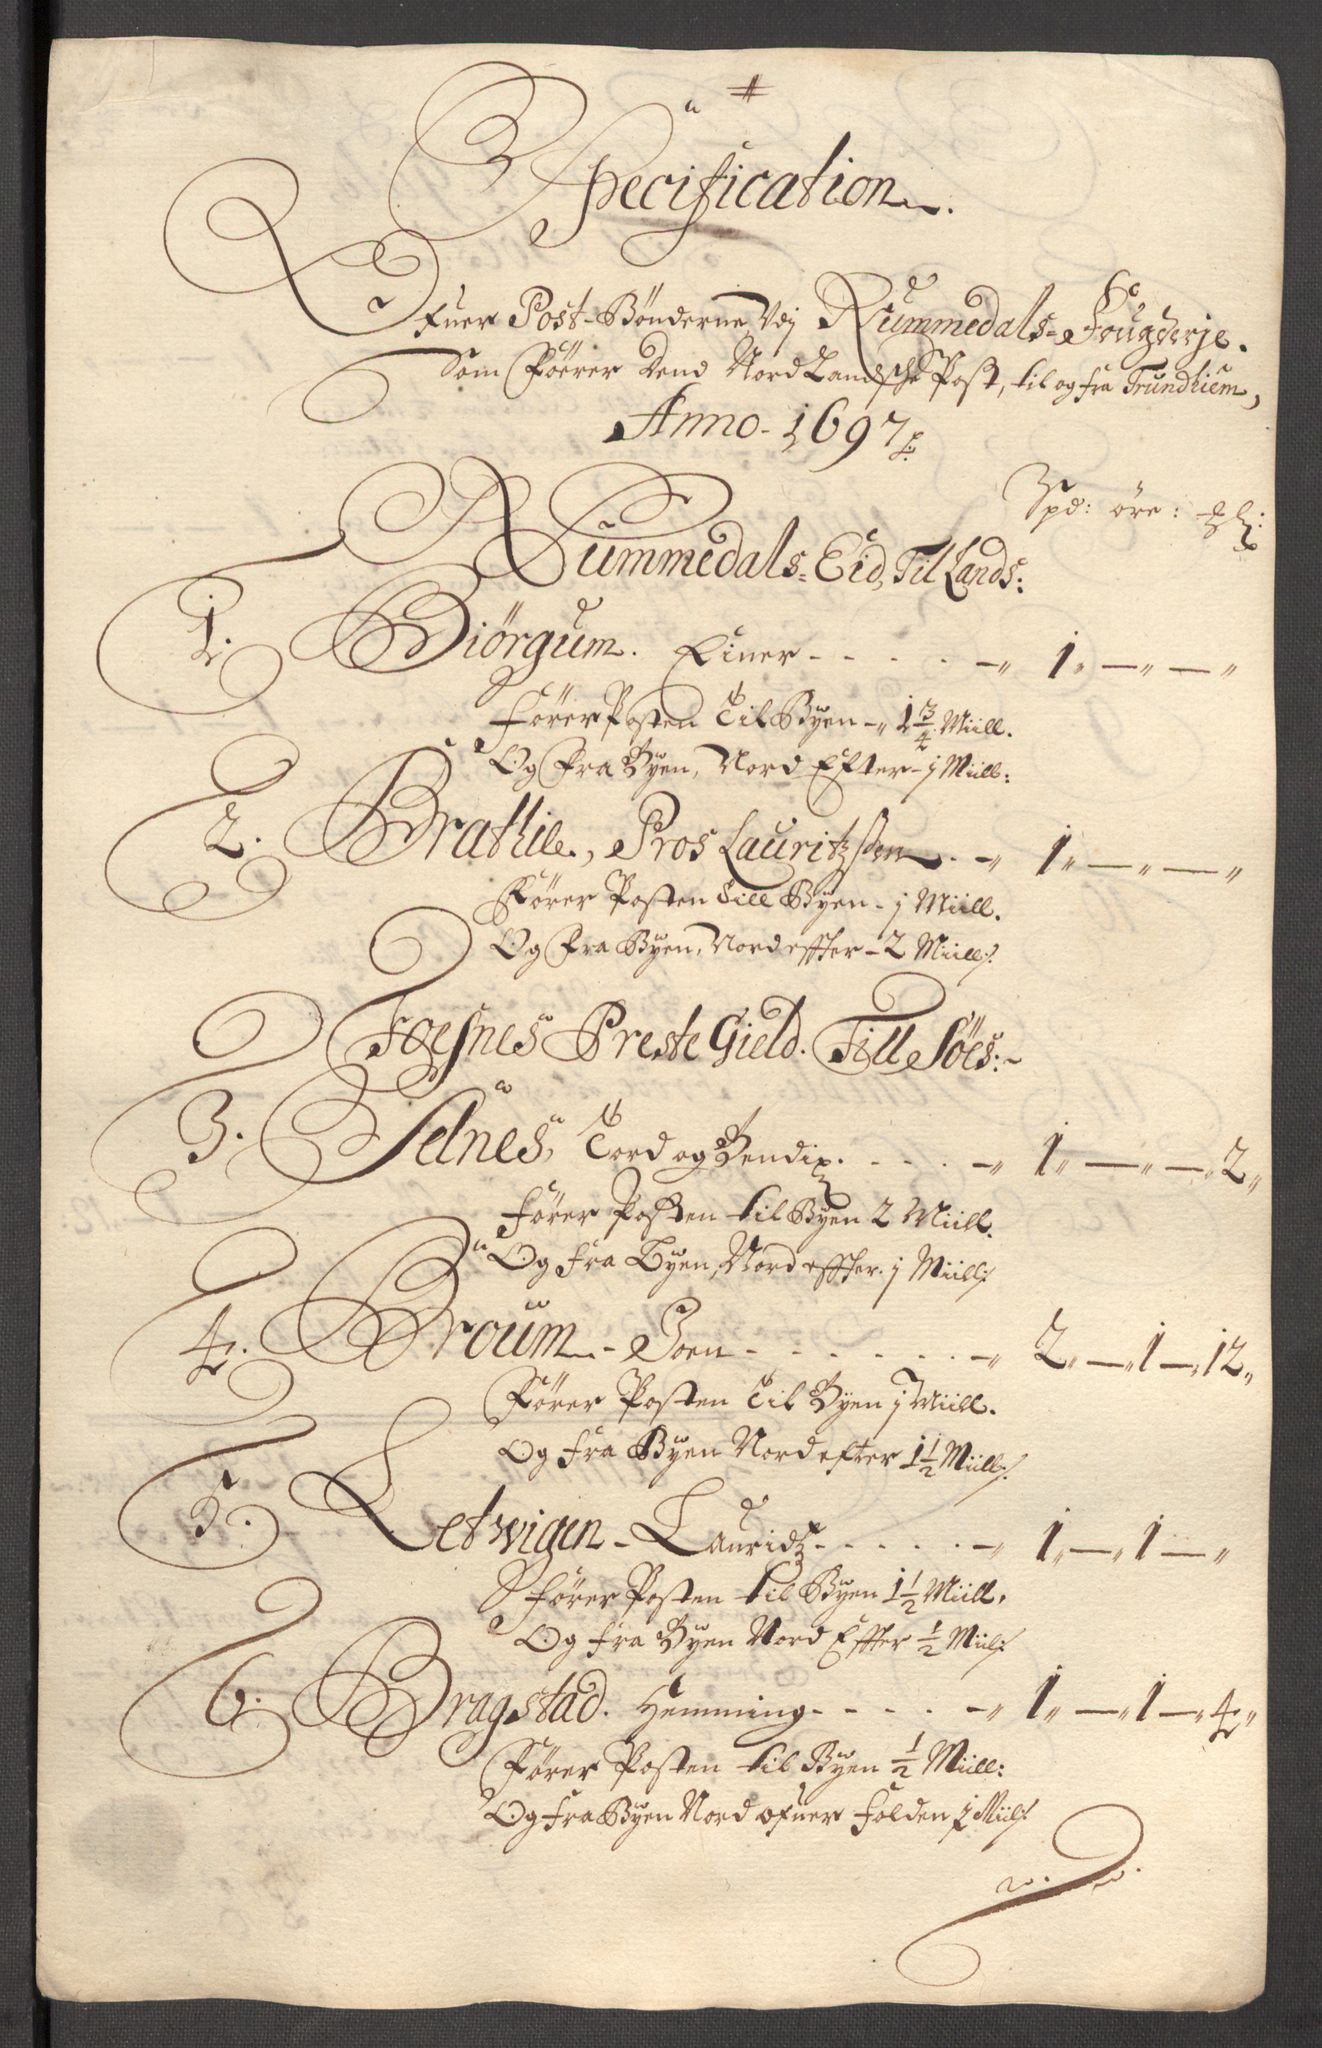 #
Specification
Ofuer Post-Bønderne Udj Nummedals-Fougderje.
Som Føerer dend Nord Landsche Post, til og fra Trundhiem,
Anno-1697
Spd: øre:
Nummedals-Eid, Til Lands:
1. Biörgum. Einer - - - - -" 1"-"-"
Fører Posten Til Byen-" 1 3/4 Miill.
Og Fra Byen, Nord Efter-j Miill:
2. Brathile, Pros Lauritzsøn - -" 1"-"-"
Fører Posten till Byen - j Miill.
Og Fra Byen, Nord effter-2 Miill:
Foesnes Preste Gield. Till Söes:-
3. Selnes, Tord og Bendix. - - - -" 1"-"-"2"
fører Posten til Byen 2 Miill.
Og fra Byen, Nord effter. j Miill:
4. Broum - Joen - - - - - -" 2"-"1-"12"
Fører Posten Til Byen j Miill.
Og fra Byen Nord efter 1 1/2 Miill:
5. Letwigen - Lauridz - - - - -" 1"-"1-"
fører Posten til Byen 1 1/2 Miill.
Og fra Byen Nord Effter 1/2 Miil:
6. Bragstad. Hemming - - - - -" 1"-"1-"4"
Fører Posten til Byen 1/2 Miill:
Og fra Byen Nord ofuer Folden Miil: